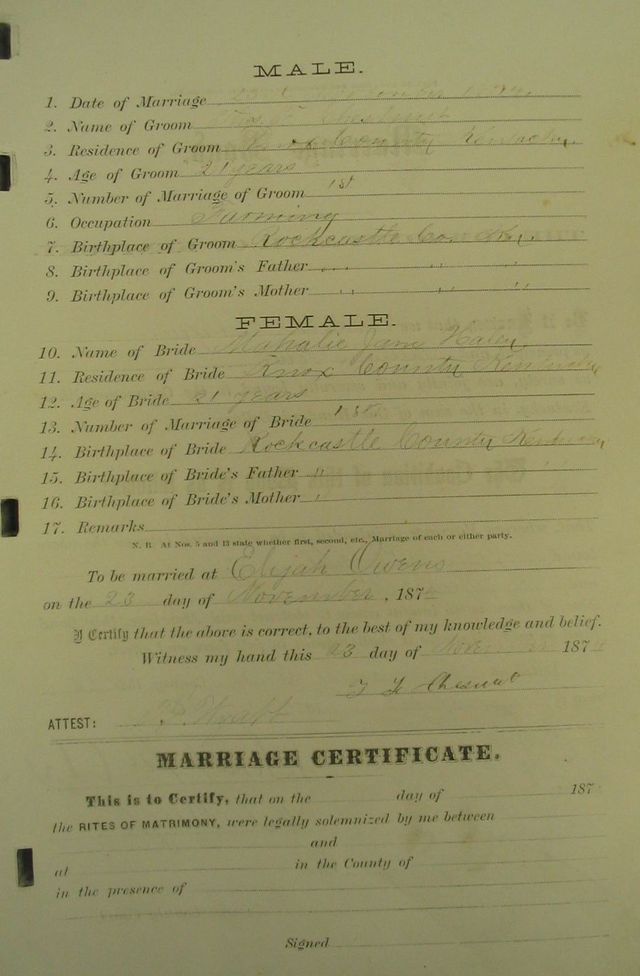 MALE.
1. Date of Marriage
2. Name of Groom
3. Residence of Groom Knox County Kentucky
4. Age of Groom 21 years
5. Number of Marriage of Groom 1st
6. Occupation Farming
7. Birthplace of Groom Rockcastle Co. Ky.
8. Birthplace of Groom's Father " " "
9. Birthplace of Groom's Mother " " "
FEMALE.
10. Name of Bride Mahalie Jane
11. Residence of Bride Knox County Kentucky
12. Age of Bride 21 years
13. Number of Marriage of Bride 1st
14. Birthplace of Bride Rockcastle County Kentucky
15. Birthplace of Bride's Father "
16. Birthplace of Bride's Mother "
17. Remarks
N. B. At Nos. 5 and 13 state whether first, second, etc., Marriage of each or either party.
To be married at Elijah Owens
on the 23 day of November, 187
I Certify that the above is correct, to the best of my knowledge and belief.
Witness my hand this 23 day of 187
ATTEST:
MARRIAGE CERTIFICATE.
This is to Certify, that on the day of 187
the RITES OF MATRIMONY, were legally solemnized by me between
and
at in the County of
in the presence of
Signed